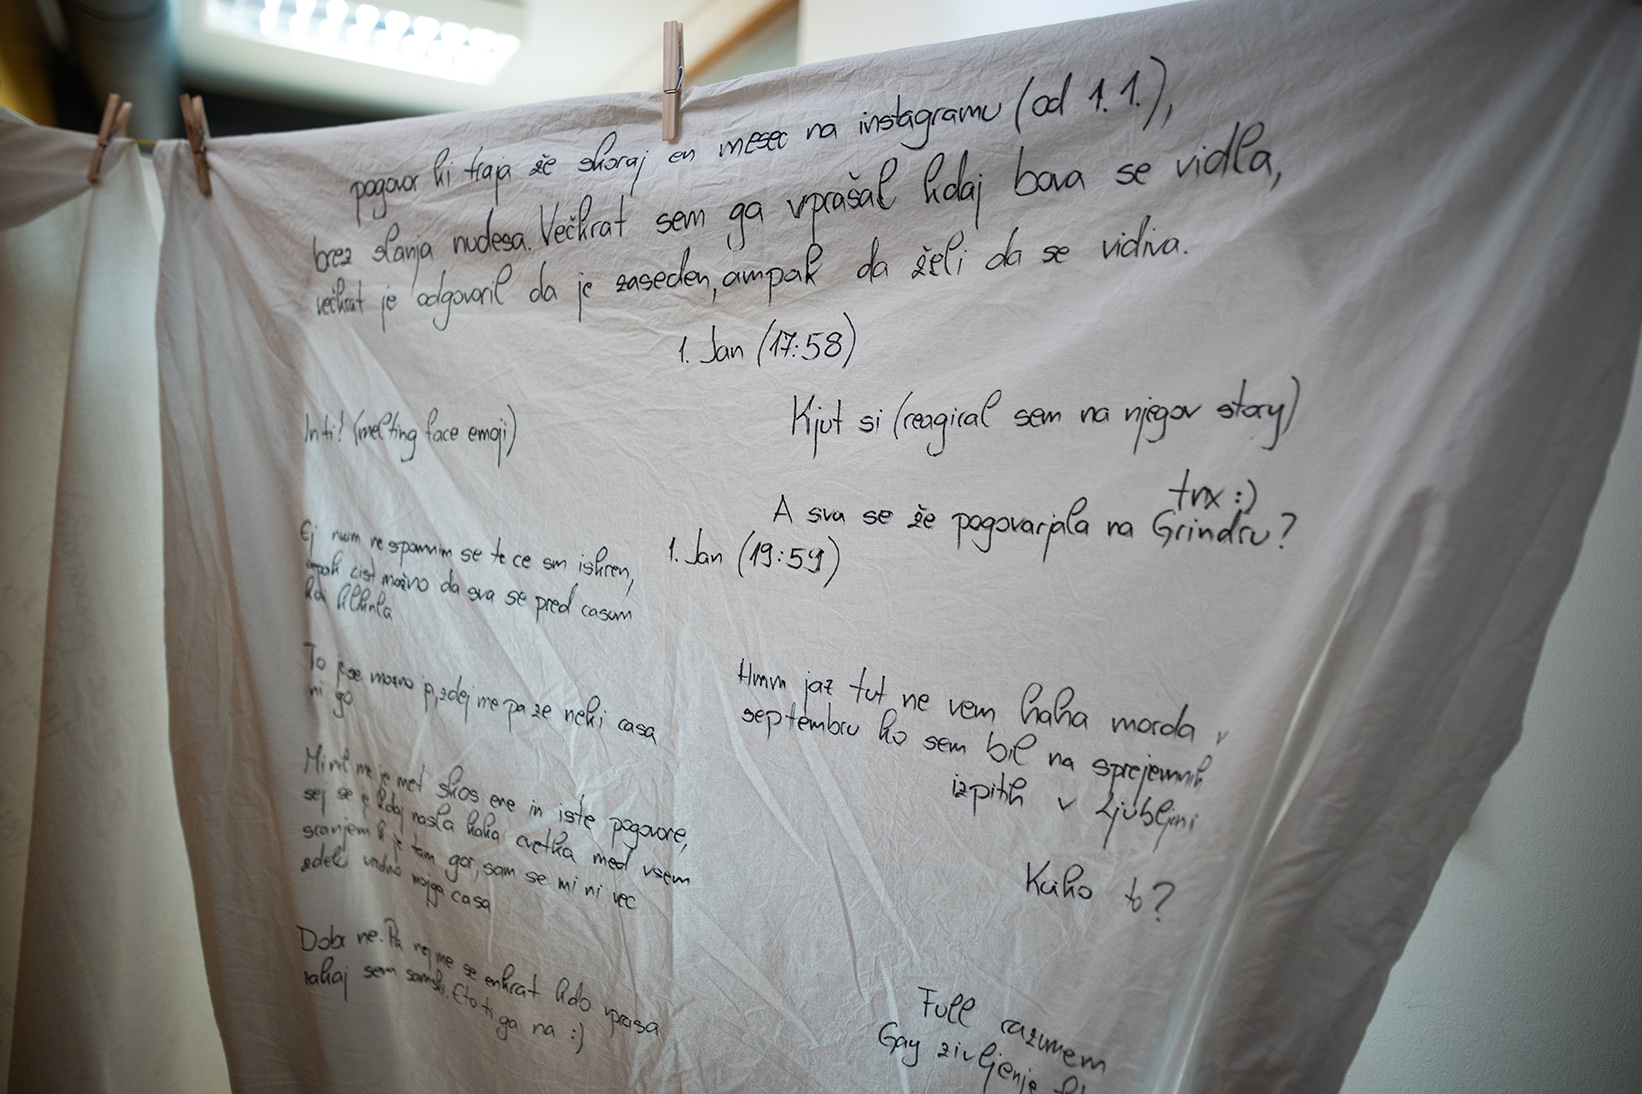 pogovor ki traja že skoraj en mesec na instagramu (od 1. 1.),
brez slanja nudesa. Večkrat sem ga vprašal kdaj bova se vidla,
večkrat je odgovoril da je zaseden, ampak da želi da se vidiva.
1. Jan (17:58)
Kjut si (reagiral sem na njegov story)
Inti! (melting face emoji)
tnx :)
A sva se že pogovarjala na Grindru?
1. Jan (19:59)
Ej num ne spomnim se te ce sm iskren,
ampak cist možno da sva se pred casum
kdi kliknla
Hmm jaz tut ne vem haha morda v
septembru ko sem bil na sprejemnih
izpitih v Ljubljani
To je se mozno ja, zdej me pa ze neki casa
ni go
Kako to?
Minil me je met skos ene in iste pogovore,
sej se e kdaj nasla kaka cvetka med vsem
sranjem k je tam gor, sam se mi ni vec
zdelo vredno mojga casa
Dobr ne. Pa nej me se enkrat kdo vprasa
zakaj sem samski. Eto ti ga na :)
Full razumem
Gay zivljenje